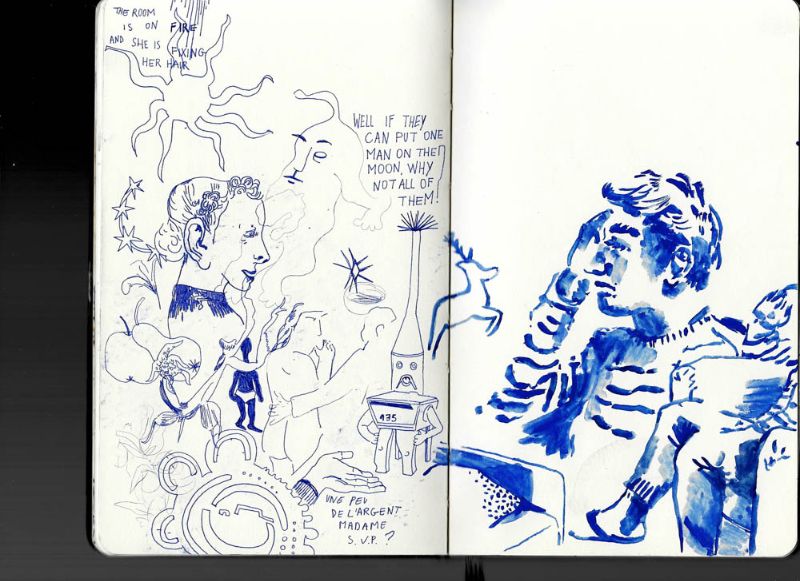 THE ROOM
IS ON FIRE
AND SHE IS FIXING
HER HAIR
WELL IF THEY
CAN PUT ONE
MAN ON THE
MOON, WHY
NOT ALL OF
THEM!
435
UNE PEU
DE L'ARGENT
MADAME
S.V.P.?